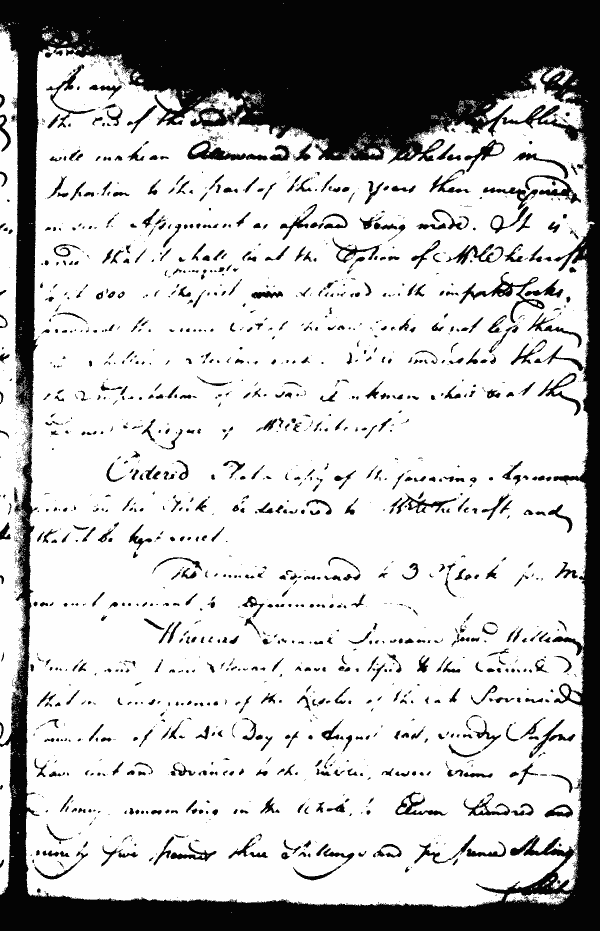 after any
the End of the said Republic
will make an Allowance to the said Whetcroft in
Proportion to the part of the two Years then unexpired
on such Assignment as aforesaid being made. It is
agreed that it shall be at the Option of Mr Whetcroft
to fit 600 of the first delivered with imported Locks,
provided the prime Cost of the said Locks be not less than
Shillings Sterling each. It is understood that
the Importation of the said Workmen shall be at the
Risque of Mr Whetcroft.
Ordered That a Copy of the foregoing Agreement
signed by the Clerk, be delivered to Mr Whetcroft, and
that it be kept secret.
The Council adjourned to 3 OClock
met pursuant to adjournment
Whereas Samuel Purviance Junr. William
Smith and Stewart, have certified to this Council
that in Consequence of the Resolve of the late Provincial
Convention of the Day of August last, sundry Persons
have lent and advanced to the Public, divers Sums of
Money amounting in the whole, to Eleven hundred and
ninety five pounds three Shillings and six pence Sterling